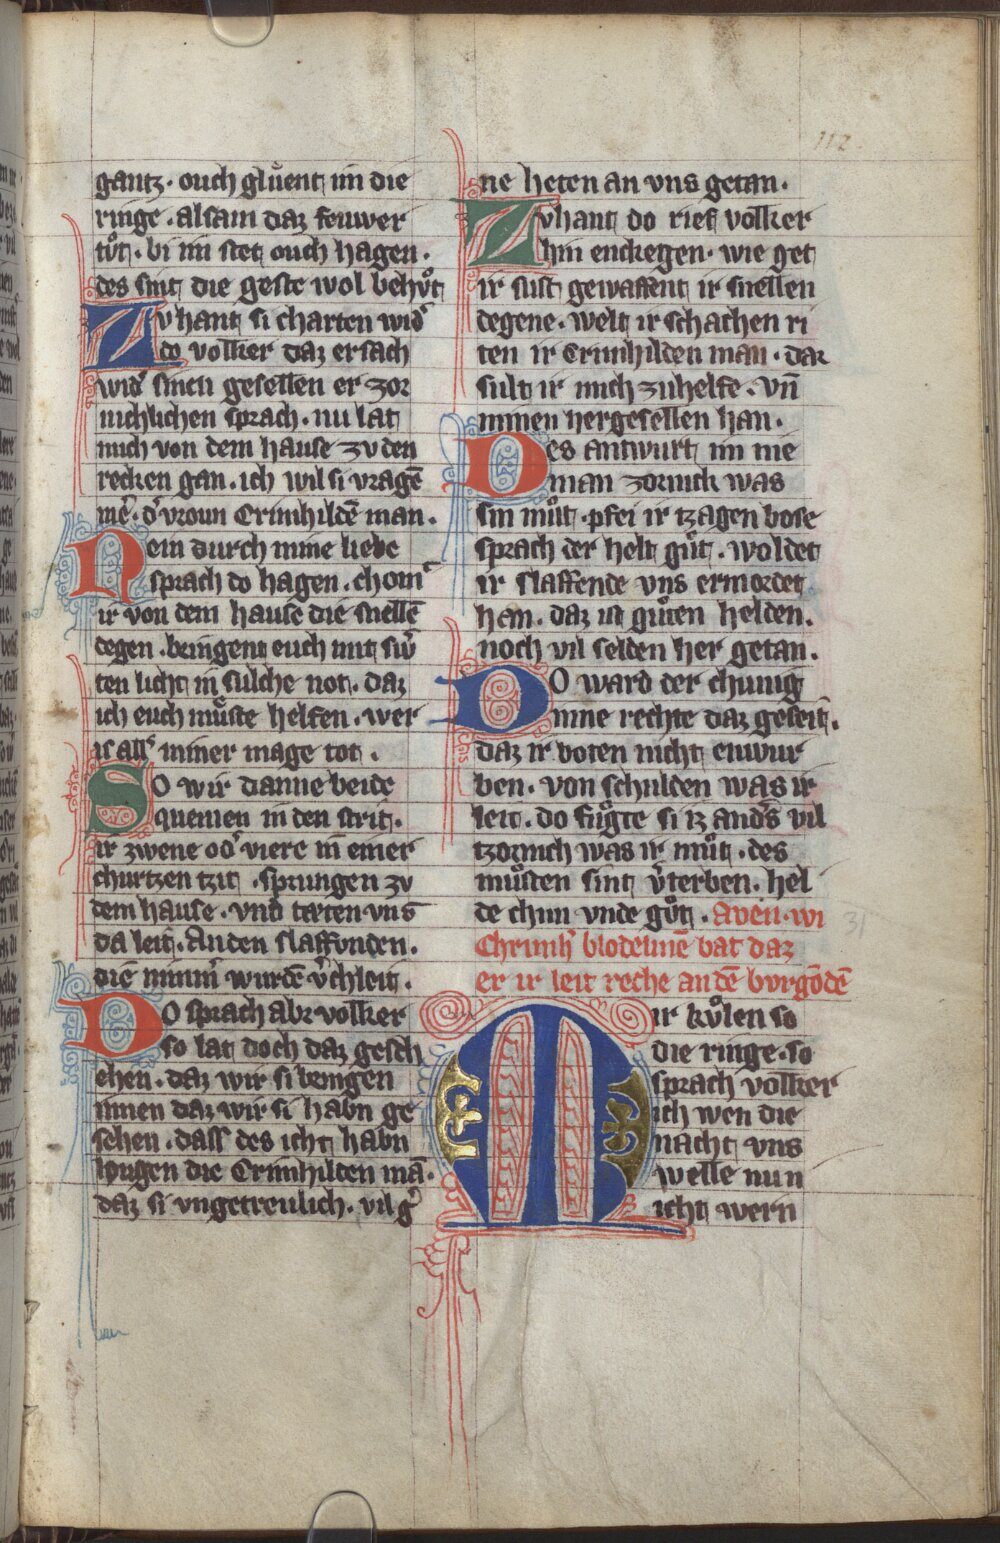 112
gantz · ouch gluͤent im die
ringe · alsam daz feuwer
tuͦt · bi im stet ouch hagen ·
des sint die geste wol behuͦt
Zvhant si charten wid͛
do volker daz ersach
wid͛ sinen gesellen er zor
nichlichen sprach · nu lat
mich von dem hause zv den
recken gan · ich wil si vragē
me͛ · d͛ vroun Crimhildē man ·
Nein durch mine liebe
sprach do hagen · chom͛
ir von dem hause die snellē
degen · bringent euch mit sw͛
ten licht in̄ sulche not · daz
ich euch muͤste helfen · wer
iz all͛ miner mage tot ·
So wir danne beide
quemen in den strit ·
ir zwene od͛ viere in̄ einer
churtzen tzit · sprungen zv
dem hause · vnd teten vns
da leit · An den slaffunden ·
die nimm͛ wurdē v͛chleit ·
Do sprach abr volker
so lat doch daz gesch
ehen · daz wir si bringen
innen daz wir si habn ge
sehen · dass des icht habn
lougen die Crimhilden mā ·
daz si vngetreulich · vil g͛
ne heten an vns getan ·
Zvhant do rief volker
hin enckegen · wie get
ir sust gewaffent ir snellen
degene · welt ir schachen ri
ten ir Crimhilden man · dar
sult ir mich zuhelfe · vn̄
minen hergesellen han ·
Des antwurt im nie
man zornick was
sin muͦt · pfei ir tzagen bose
sprach der helt guͦt · woldet
ir slaffende vns ermordet
han · daz ist guͦten helden ·
noch vil selden her getan ·
Do ward der chunig
inne rechte daz geseit ·
daz ir boten nicht enwur
ben · von schulden was ir
leit · do fuͤgte si iz and͛s vil
tzornich was ir muͦt · des
muͤsten sint v͛terben · hel
de chun vnde guͦt · Aven · wi
Chrimh͛ blodelinē bat daz
er ir leit reche an dē bvrgōdē
31
Mir kuͦlen so
die ringe · so
sprach volker
ich wen die
nacht vns
welle nun
icht wern